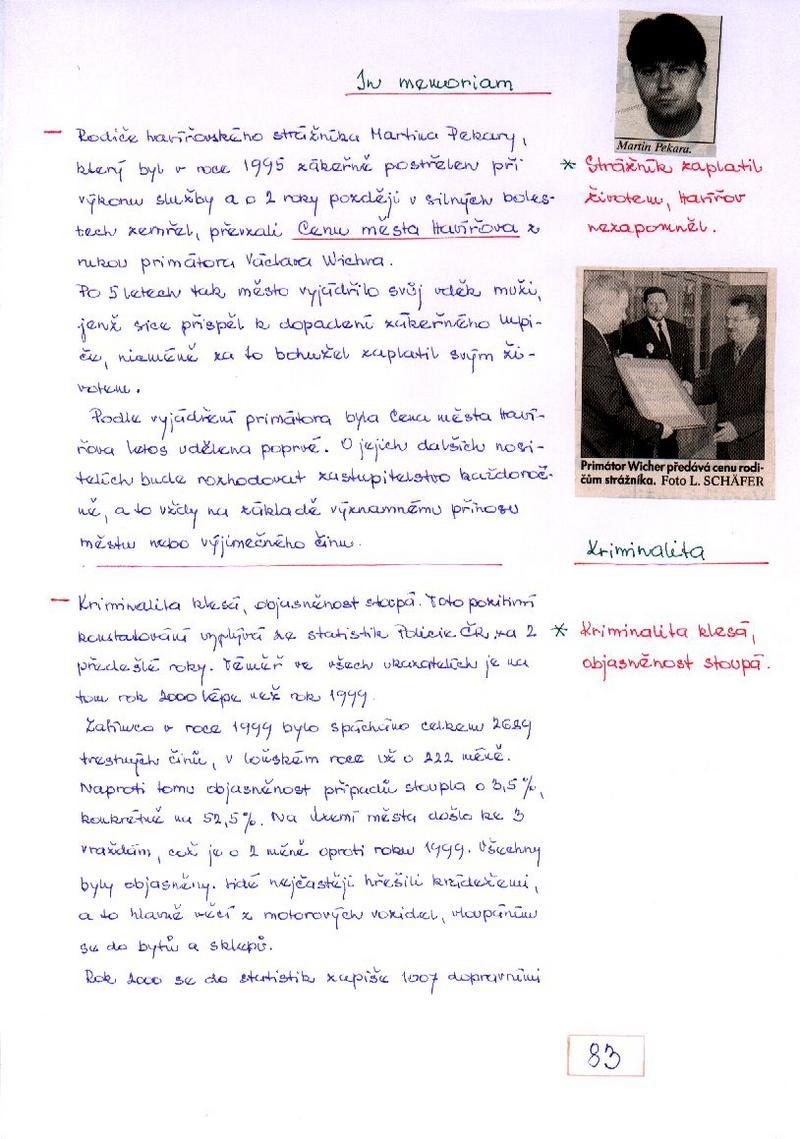 In memoriam
Martin Pekara.
— Rodiče havířovského strážníka Martina Pekary,
který byl v roce 1995 zákeřně postřelen při
výkonu služby a o 2 roky později v silných boles-
tech zemřel, převzali Cenu města Havířova z
rukou primátora Václava Wichra.
Po 5 letech tak město vyjádřilo svůj vděk muži,
jenž sice přispěl k dopadení zákeřného lupi-
če, nicméně za to bohužel zaplatil svým ži-
votem.
Podle vyjádření primátora byla Cena města Haví-
řova letos udělena poprvé. O jejich dalších nosi-
telích bude rozhodovat zastupitelstvo každoroč-
ně, a to vždy na základě významnému přínosu
městu nebo výjimečného činu.
* Strážník zaplatil
životem, Havířov
nezapomněl.
Primátor Wicher předává cenu rodi-
čům strážníka. Foto L. SCHÄFER
Kriminalita
— Kriminalita klesá, objasněnost stoupá. Toto pozitivní
konstatování vyplývá ze statistik Policie ČR za 2
předešlé roky. Téměř ve všech ukazatelích je na
tom rok 2000 lépe než rok 1999.
Zatímco v roce 1999 bylo spácháno celkem 2689
trestných činů, v loňském roce už o 222 méně.
Naproti tomu objasněnost případů stoupla o 3,5%,
konkrétně na 52,5%. Na území města došlo ke 3
vraždám, což je o 2 méně oproti roku 1999. Všechny
byly objasněny. Lidé nejčastěji hřešili krádežemi,
a to hlavně věcí z motorových vozidel, vloupáním
se do bytů a sklepů.
Rok 2000 se do statistik zapíše 1007 dopravními
* Kriminalita klesá,
objasněnost stoupá.
83